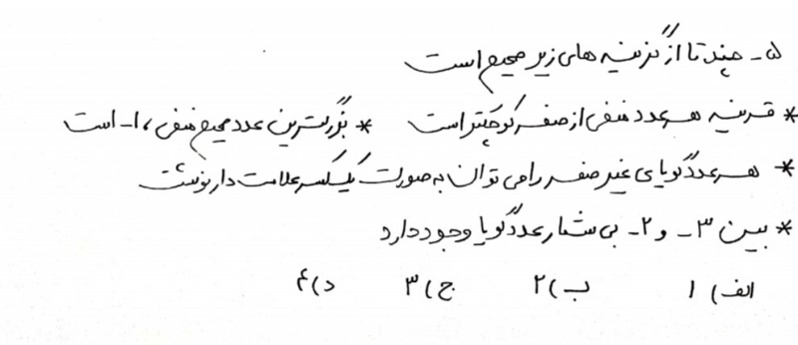 ۵- چند تا از گزینه های زیر صحیح است
* قرینه هر عدد منفی از صفر کوچکتر است * بزرگترین عدد صحیح منفی ، ۱- است
* هر عدد گویای غیر صفر را می توان به صورت یک کسر علامت دار نوشت
* بین ۳- و ۲- بی شمار عدد گویا وجود دارد
الف) ۱ ب) ۲ ج) ۳ د) ۴